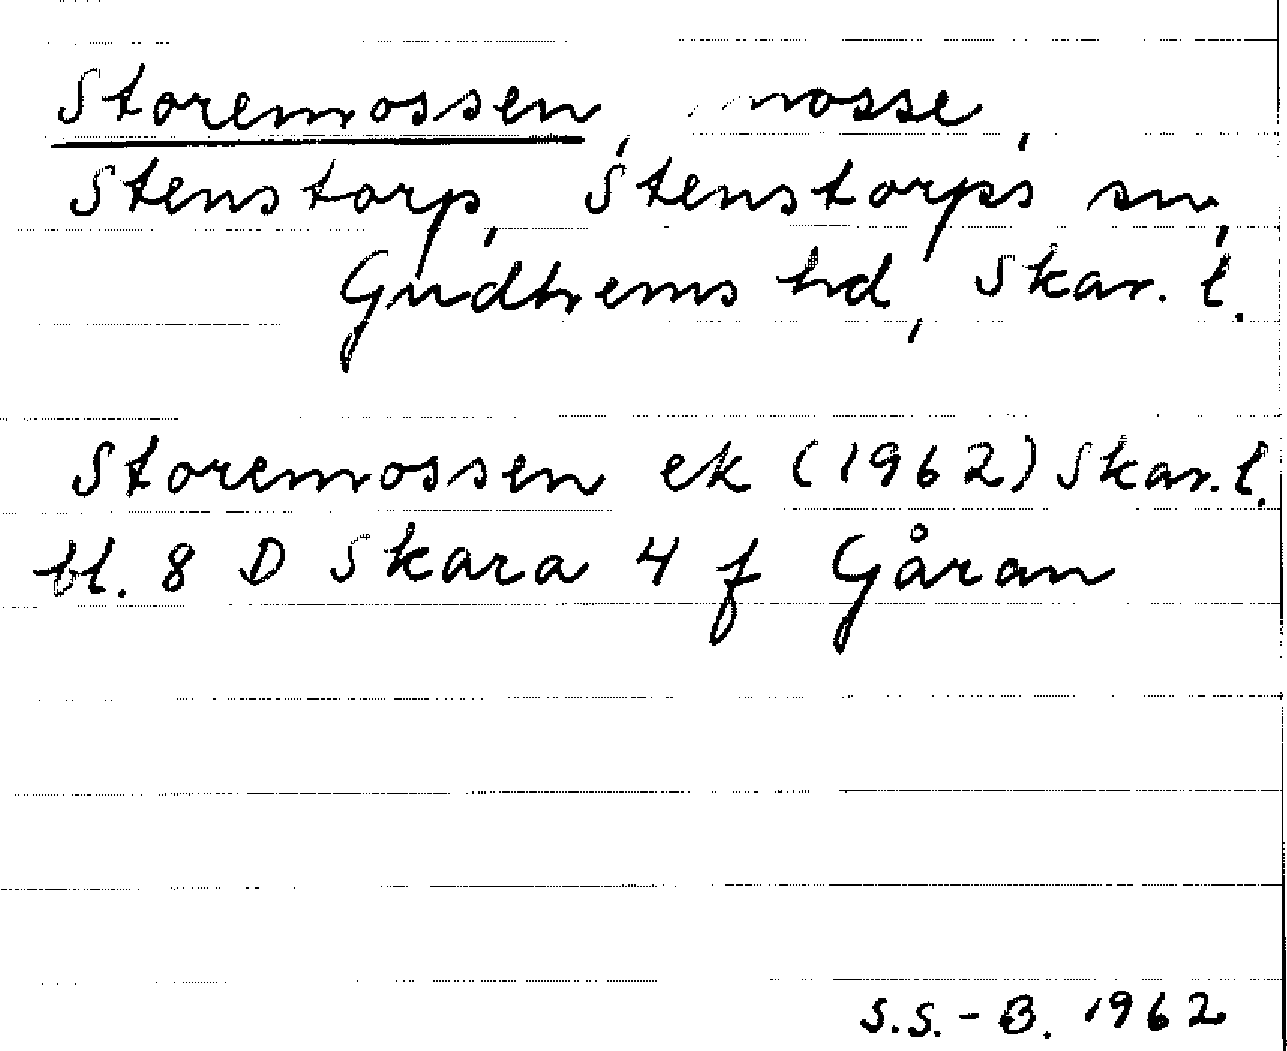 Storemossen, mosse,
Stenstorp, Stenstorps sn,
Gudhems hd, Skar. l.
Storemossen ek (1962) Skar. l.
bl. 8 D Skara 4 f Gåran
S.S.-B. 1962